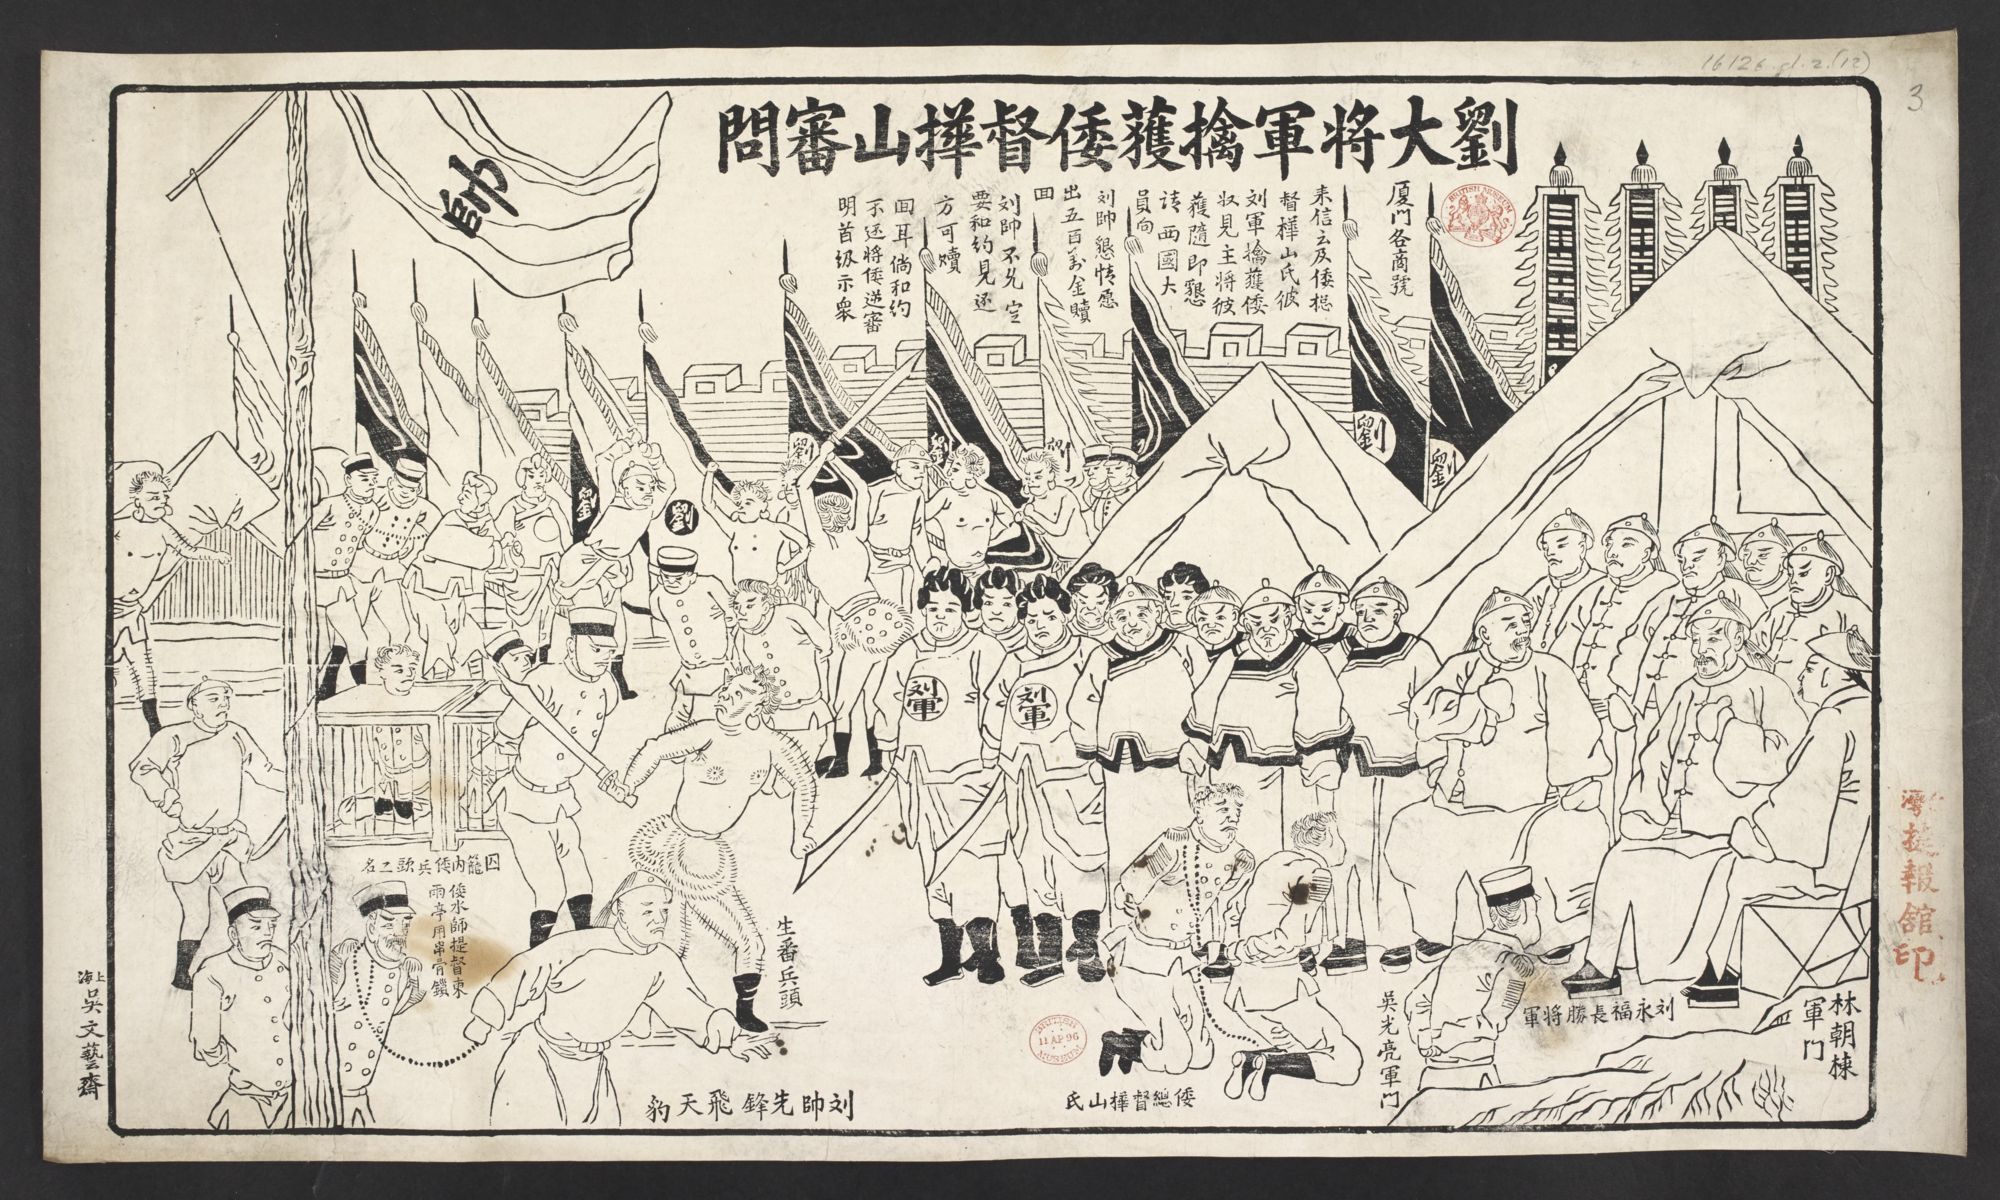 劉大將軍擒獲倭督樺山審問
厦门各商號
来信云及倭揔
督樺山氏彼
刘軍擒獲倭
奴見主將彼
獲隨即懇
请西國大
員向
刘帥懇情愿
出五百萬金贖
回
刘帥不允定
要和約見还
方可贖
回耳倘和約
不还將倭逆審
明首级示衆
帥
劉
劉
劉
劉
劉
劉
劉
刘軍
刘軍
囚籠内倭兵頭二名
倭水師提督東
雨亭用串骨鎖
生番兵頭
刘帥先鋒飛天豹
倭總督樺山氏
吳光亮軍门
刘永福長勝將軍
林朝棟
軍门
上海吳文藝齋
灣捷報舘印
BRITISH MUSEUM
BRITISH MUSEUM
11 AP 96
3